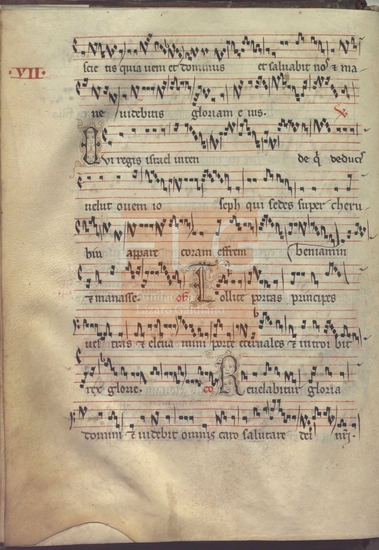 ·VII·
scie tis quia veni et dominus et saluabit nos & ma
ne videbitis gloriam e ius.
Qui regis israel inten de q̄ deducis
uelut ouem io seph qui sedes super cheru
bin appare coram effrem beniamin
& manasse. of Tollite portas principes
uestras & eleua mini porte eternales & introi bit
rex glorie. co Reuelabitur gloria
domini & uidebit omnis caro salutare dei nr̄i.